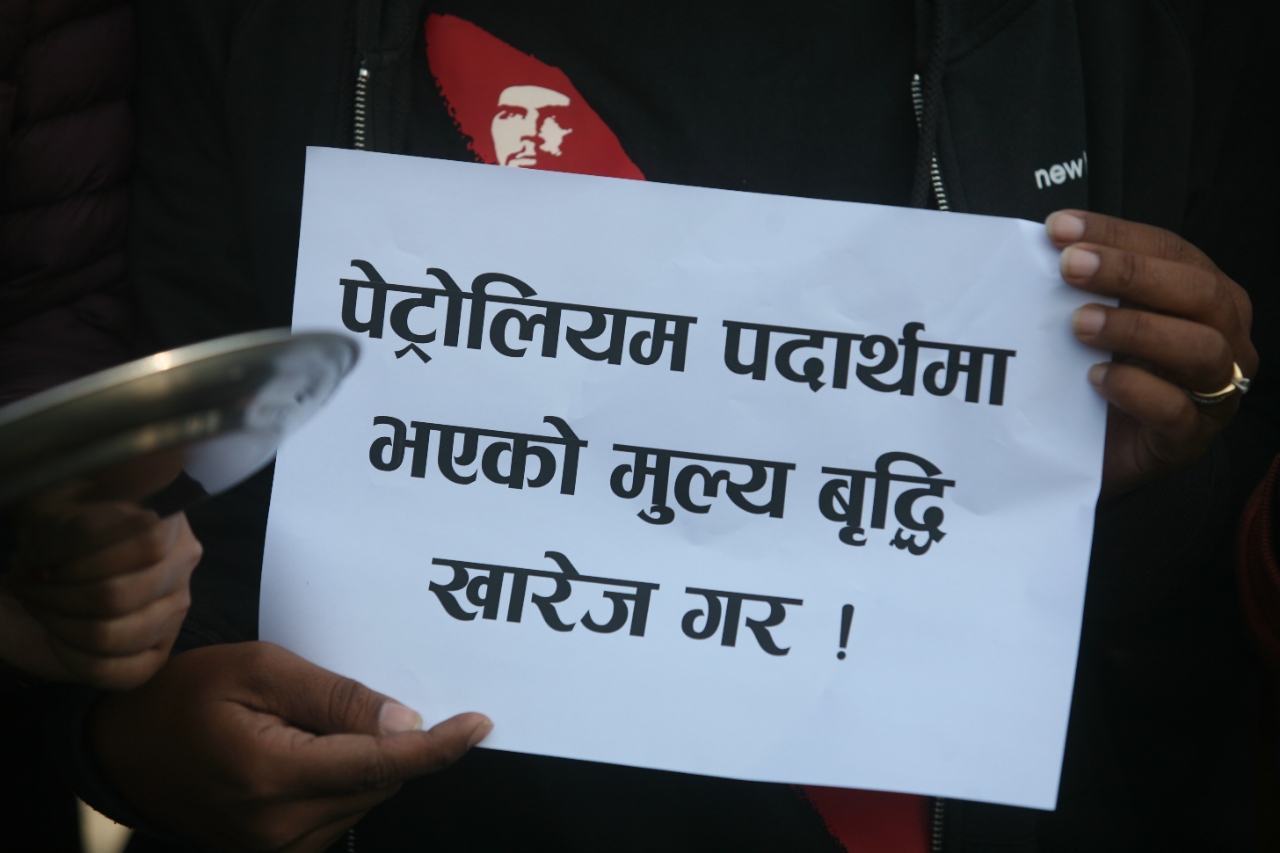 new
पेट्रोलियम पदार्थमा
भएको मुल्य बृद्धि
खारेज गर !